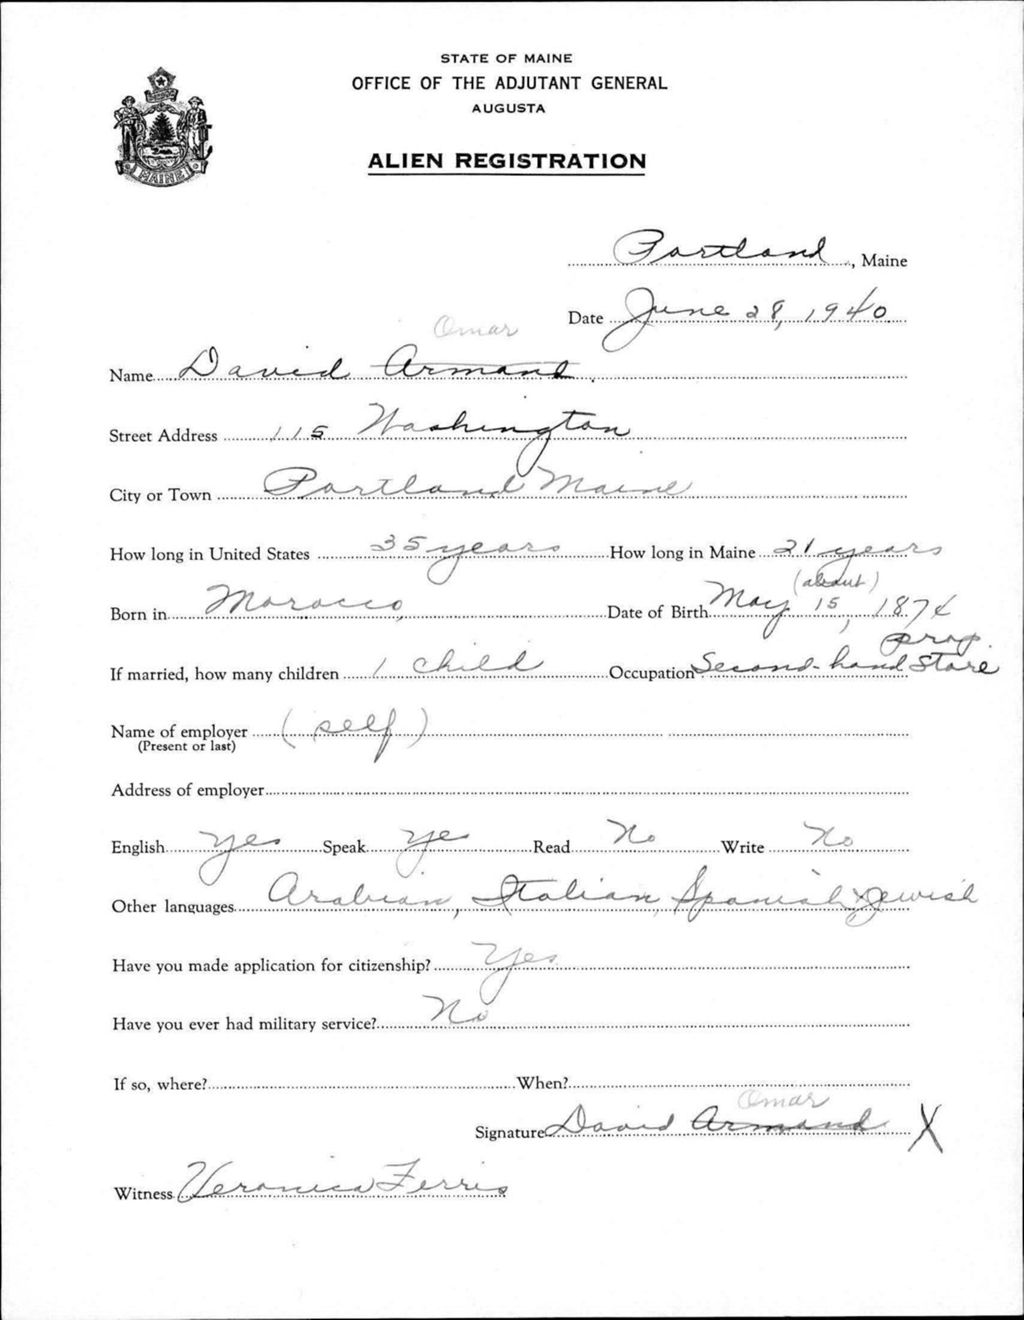 STATE OF MAINE
OFFICE OF THE ADJUTANT GENERAL
AUGUSTA
MAINE
ALIEN REGISTRATION
Portland, Maine
Date June 28, 1940
Omar
Name David Armand
Street Address 115 Washington
City or Town Portland Maine
How long in United States 35 years How long in Maine 21 years
(about)
Born in Morocco, Date of Birth May 15, 1874
prop.
If married, how many children 1 child Occupation Second-hand Store
Name of employer (self)
(Present or last)
Address of employer
English yes Speak yes Read No Write No
Other languages Arabian, Italian, Spanish & Jewish
Have you made application for citizenship? Yes
Have you ever had military service? No
If so, where? When?
Omar
Signature David Armand X
Witness Veronica Ferris